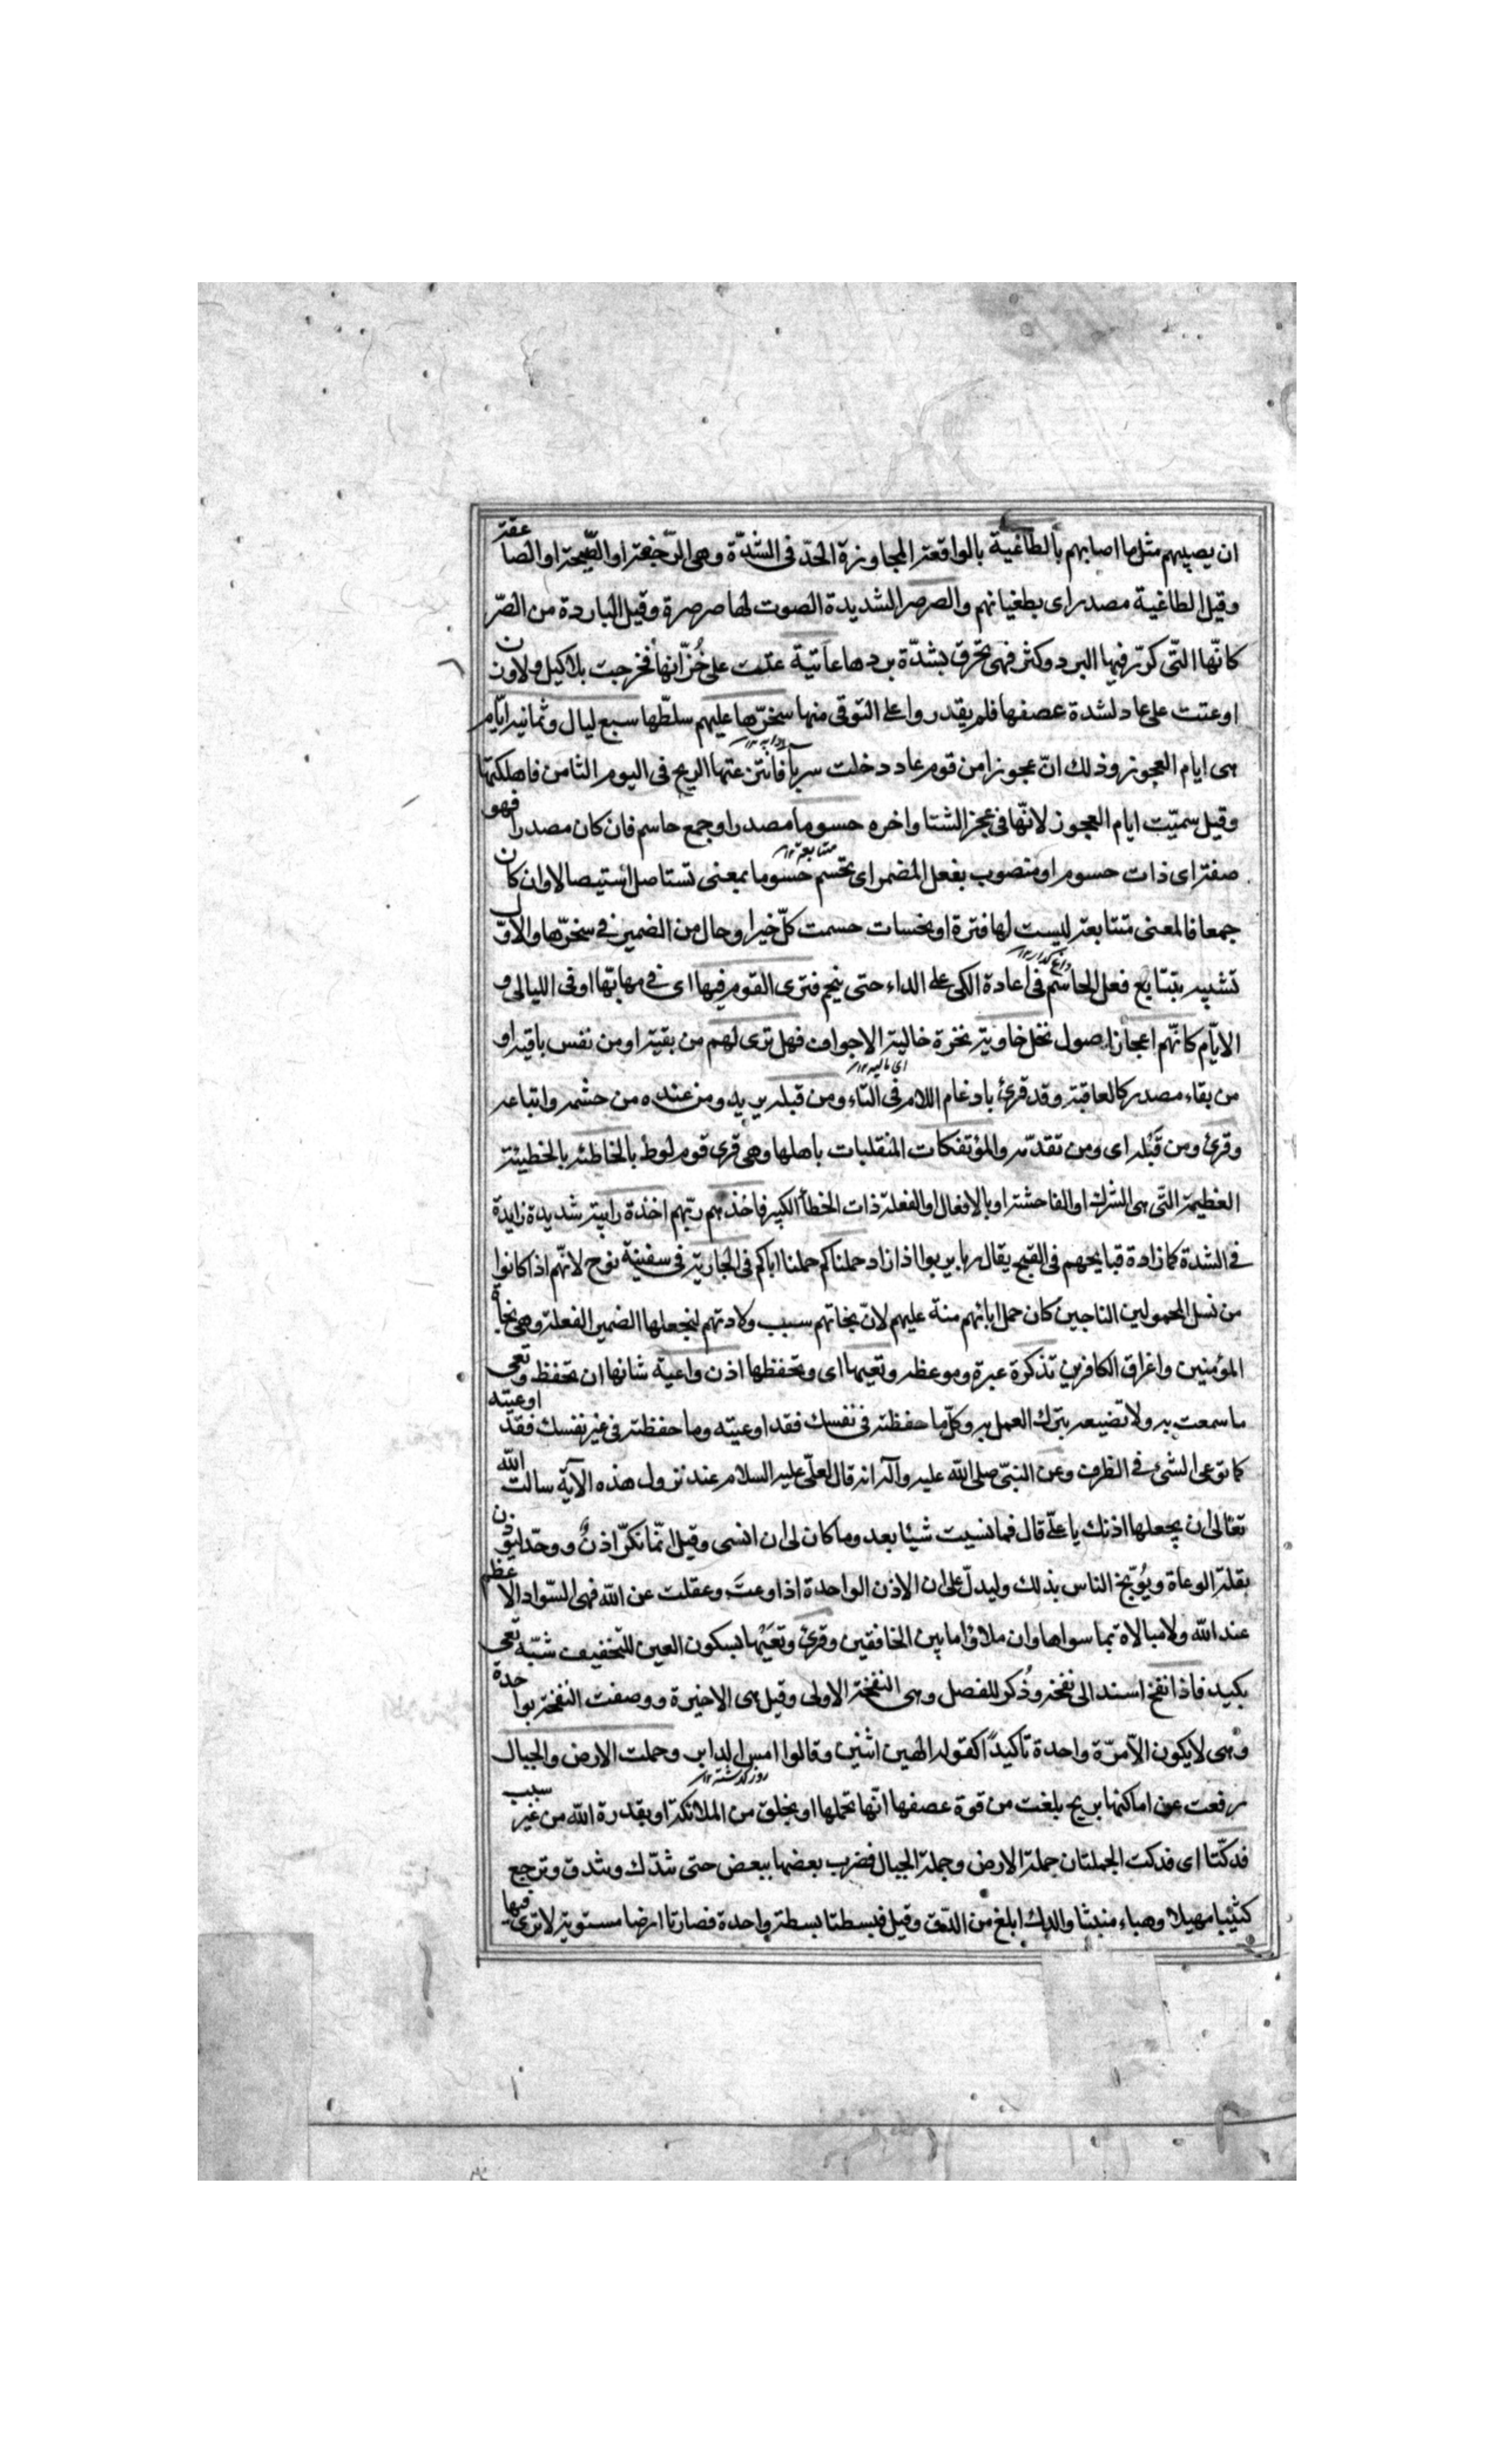 ان يصيبهم مثل ما اصابهم بالطاغية بالواقعة المجاوزة الحدّ فى الشدّة وهى الرّجفة او الصّيحة او الصاعقة
وقيل الطاغية مصدر اى بطغيانهم والصرصر الشديدة الصوت لها صرصرة وقيل الباردة من الصّر
كانّها التّى كرّر فيها البرد وكثر فهى تحرق بشدّة بردها عاتية عتت على خُزّانها فخرجت بلا كيل ولا وزن
او عتت على عاد لشدة عصفها فلم يقدروا على التوقى منها سخرّها عليهم سلطّها سبع ليال وثمانية ايّام
هى ايام العجوز وذلك انّ عجوزا من قوم عاد دخلت سربا فانتزعتها الريح فى اليوم الثامن فاهلكتها
وقيل سميّت ايام العجوز لانّها فى عجز الشتا واخره حسوما مصدر او جمع حاسم فان كان مصدرا فهو
صفة اى ذات حسوم او منصوب بفعل المضمر اى تحسم حسوما بمعنى تستاصل استيصالا وان كان
متتابعة ١٢
جمعا فالمعنى متتابعة ليست لها فترة او نحسات حسمت كلّ خير او حال من الضمير فى سخرّها والاوّل
تشبيه بتتابع فعل الحاسم فى اعادة الكى على الداء حتى ينحم فترى القوم فيها اى فى مهابّها او فى الليالى و
الايّام كانّهم اعجاز اصول نخل خاوية نخرة خالية الاجواف فهل ترى لهم من بقية او من نفس باقية او
من بقاء مصدر كالعاقبة وقد قرئ بادغام اللام فى التاء ومن قبله يريد ومن عنده من حشمه واتباعه
وقرئ ومن قَبْله اى ومن تقدّمه والمؤتفكات المنقلبات باهلها وهى قرى قوم لوط بالخاطئة بالخطيئة
العظيمة التّى هى الشرك او الفاحشة او بالافعال او الفعلة ذات الخطأ الكبير فاخذهم ربّهم اخذة رابية شديدة زايدة
فى الشدة كما زادة قبايحهم فى القبح يقال ربا يربوا اذا زاد حملناكم حملنا اباكم فى الجارية فى سفينة نوح لانّهم اذا كانوا
من نسل المحمولين الناجين كان حمل ابائهم منة عليهم لانّ نجاتهم سبب ولادتهم لنجعلها الضمير الفعلة وهى نجاة
المؤمنين واغراق الكافرين تذكرة عبرة وموعظة وتعيها اى وتحفظها اذن واعية شانها ان تحفظ وتعى
ما سمعت به ولا تضيعه بترك العمل به وكلّ ما حفظته فى نفسك فقد اوعيته وما حفظته فى غير نفسك فقد اوعيته
كما توعى الشئ فى الظرف وعن النبىّ صلى الله عليه وآله انه قال لعلّى عليه السلام عند نزول هذه الآية سالت الله
تعالى ان يجعلها اذنك يا علّى قال فما نسيت شيئا بعد وما كان لى ان انسى وقيل انّما نكرّ اذنٌ ووحّد ليوذن
بقلة الوعاة ويُوبّخ الناس بذلك وليدلّ على ان الاذن الواحدة اذا وعتَ وعقلت عن الله فهى السّواد الاعظم
عند الله ولا مبالاة بما سواها وان ملاؤا ما بين الخافقين وقرئ وتعَيْها بسكون العين للتخفيف شبّه تعى
بكبد فاذا نفخ اسند الى نفخة وذُكر للفصل وهى النفخة الاولى وقيل هى الاخيرة ووصفت النفخة بواحدة
وهى لا يكون الاّ مرّة واحدة تاكيداً كقوله الهين اثنين وقالوا امس الدابر وحملت الارض والجبال
روز گذشته ١٢
رفعت عن اماكنها بريح بلغت من قوة عصفها انّها تحملها او بخلق من الملائكة او بقدرة الله من غير سبب
فدكّتا اى فدكت الجملتان جملة الارض وجملة الجبال فضرب بعضها ببعض حتى تندّك وتندق وترجع
كثيبا مهيلا وهباء منبثا والدك ابلغ من الدّق وقيل فبسطتا بسطة واحدة فصارتا ارضا مستوية لا ترى فيها